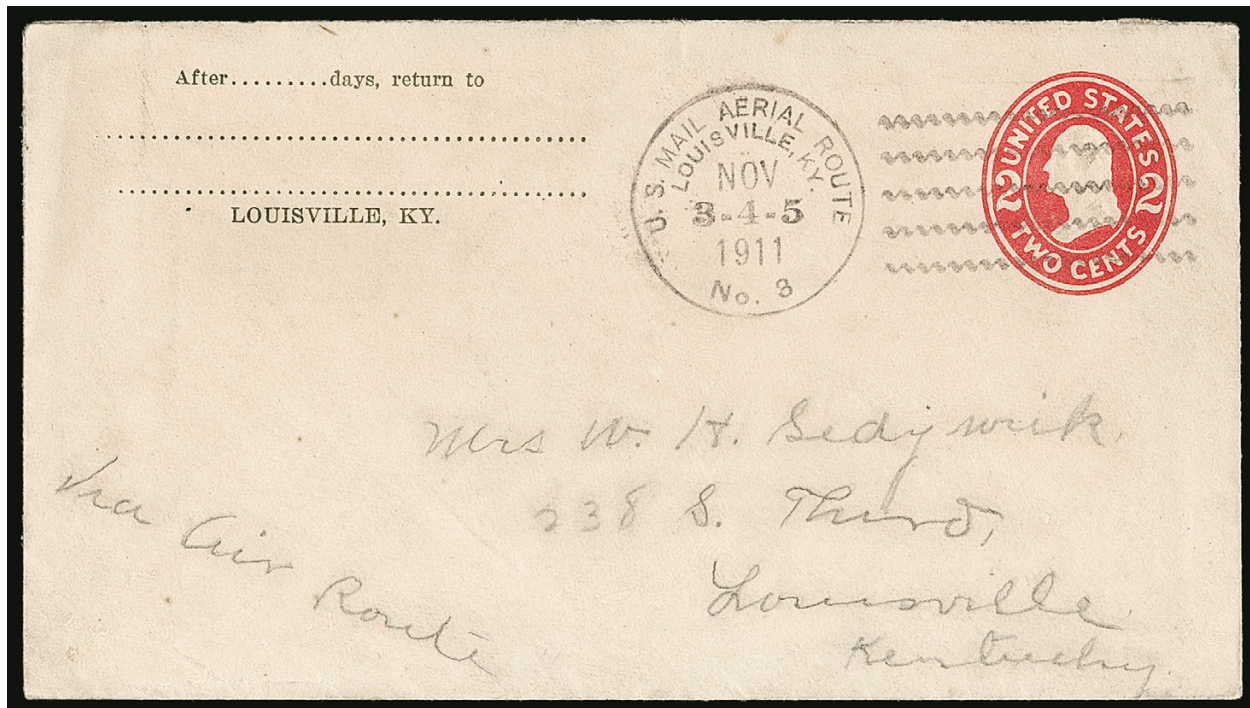 After.........days, return to
LOUISVILLE, KY.
U. S. MAIL AERIAL ROUTE
LOUISVILLE, KY.
NOV
3-4-5
1911
No. 3
UNITED STATES
2 2
TWO CENTS
Mrs W. H. Sedgwick.
238 S. Third,
Louisville
Kentucky
Via Air Route